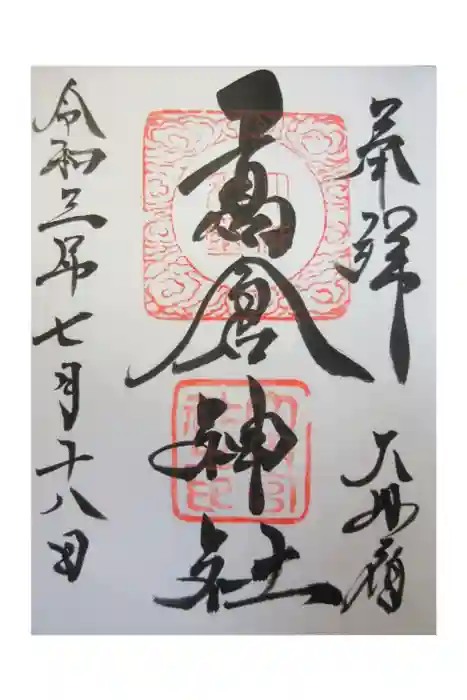 奉拝
大井宿
高倉神社
令和三年七月十八日